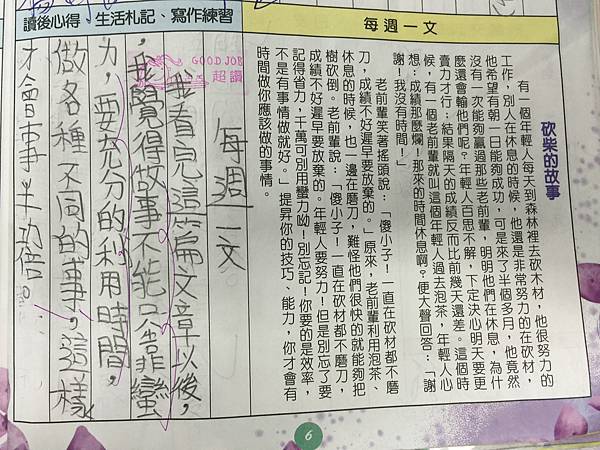 每週一文
砍柴的故事
有一個年輕人每天到森林裡去砍木材,他很努力的
工作,別人在休息的時候,他還是非常努力的在砍材,
他希望有朝一日能夠成功,可是來了半個多月,他竟然
沒有一次能夠贏過那些老前輩,明明他們在休息,為什
麼還會輸他們呢?年輕人百思不解,下定決心明天要更
賣力才行;結果隔天的成績反而比前幾天還差。這個時
候,有一個老前輩就叫這個年輕人過去泡茶,年輕人心
想:成績那麼爛!那來的時間休息啊?便大聲回答:「謝
謝!我沒有時間!」
老前輩笑著搖頭說:「傻小子!一直在砍材都不磨
刀,成績不好遲早要放棄的。」原來,老前輩利用泡茶、
休息的時候,也一邊在磨刀,難怪他們很快的就能夠把
樹砍倒。老前輩說:「傻小子!一直在砍材都不磨刀,
成績不好遲早要放棄的。年輕人要努力!但是別忘了要
記得省力,千萬可別用蠻力呦!別忘記!你要的是效率,
不是有事情做就好。」提昇你的技巧、能力,你才會有
時間做你應該做的事情。
讀後心得、生活札記、寫作練習
GOOD JOB
超讚
每週一文
我看完這篇文章以後,
我覺得做事不能只靠蠻
力,要充分的利用時間,
做各種不同的事,這樣
才會事半功倍。
6